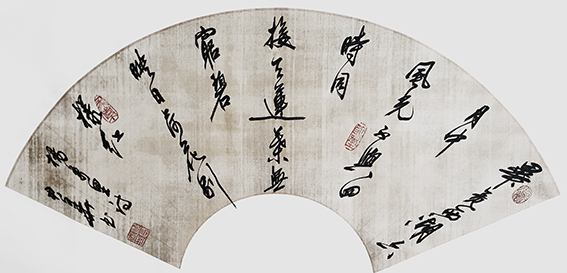 畢竟西湖六
月中
風光不與四
時同
接天蓮葉無
窮碧
映日荷花別
樣紅